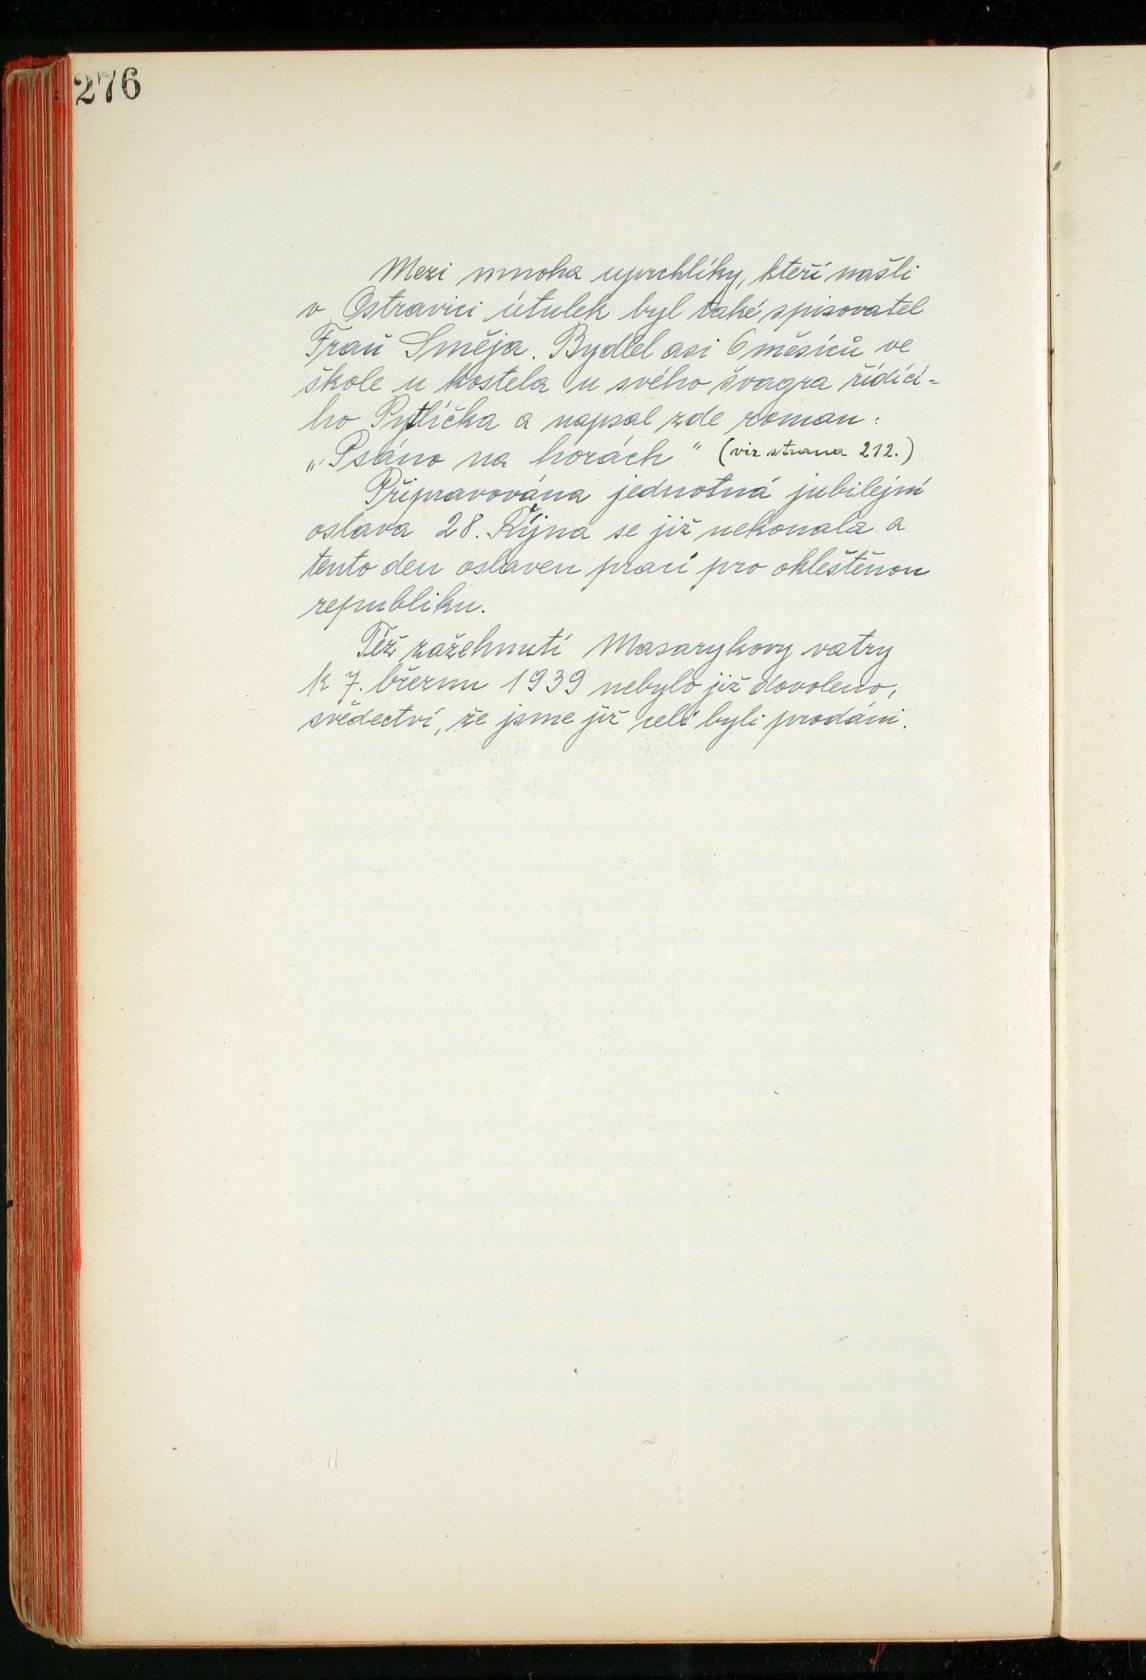 276
Mezi mnoha uprchlíky, kteří našli
v Ostravici útulek byl také spisovatel
Fraň Směja. Bydlel asi 6 měsíců ve
škole u kostela u svého švagra řídící-
ho Pytlíčka a napsal zde roman:
„Psáno na horách" (viz strana 212.)
Připravována jednotná jubilejní
oslava 28. Října se již nekonala a
tento den oslaven prací pro okleštěnou
republiku.
Též zažehnutí Masarykovy vatry
k 7. březnu 1939 nebylo již dovoleno,
svědectví, že jsme již celí byli prodáni.